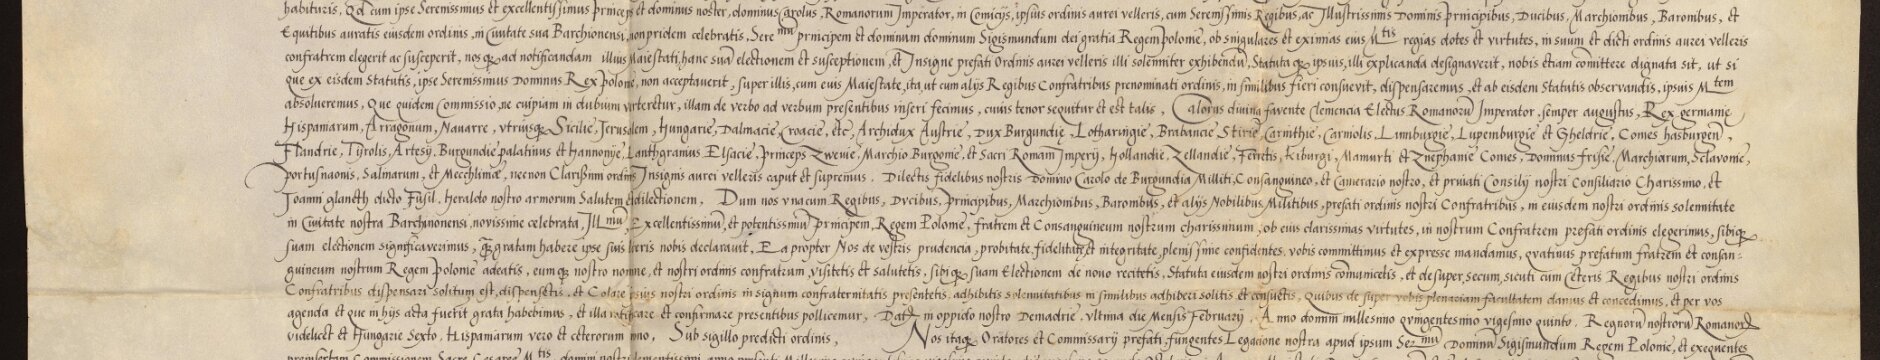 habituris, Qd cum ipse Serenissimus et excellentissimus princeps et dominus noster, dominus Carolus, Romanorum Imperator, in Comicijs, ipsius ordinis aurei velleris, cum Serenissimis Regibus, ac Illustrissimis Dominis principibus, Ducibus, Marchionibus, Baronibus, et
Equitibus auratis eiusdem ordinis, in Civitate sua Barchionensi, non pridem celebratis, Sere mu principem et dominum dominum Sigismundum dei gratia Regem polonie, ob singulares et eximias eius Mtis regias dotes et virtutes, in suum et dicti ordinis aurei velleris
confratrem elegerit ac susceperit, nosq ad notificandam illius Maiestati, hanc sua electionem et susceptionem, et Insigne prefati Ordinis aurei velleris illi solemniter exhibendu, Statuta q ipsius, illi explicanda designaverit, nobis etiam comittere dignata sit, ut si
que ex eisdem Statutis, ipse Serenissimus Dominus Rex polonie, non acceptaverit, super illis, cum eius Maiestate, ita, ut cum alijs Regibus Confratribus prenominati ordinis, in similibus fieri consuevit, dispensaremus, et ab eisdem Statutis observandis, ipsius Mtem
absolueremus, Que quidem Commissio, ne cuipiam in dubium verteretur, illam de verbo ad verbum presentibus inseri fecimus, cuius tenor sequitur et est talis, Carolus divina favente clemencia Electus Romanoru Imperator, semper augustus, Rex germanie
Hispaniarum, Arragonum, Navarre, utriusq Sicilie, Jerusalem, Hungarie, Dalmacie, Croacie, etc, Archidux Austrie, Dux Burgundie, Lotharingie, Brabancie, Stirie, Carnithie, Carniolis, Limburgie, Lupemburgie et Gheldrie, Comes hasburgen,
Flandrie, Tyrolis, Artesij, Burgundie palatinus et Hannonije, Lanthgravius Elsacie, princeps Zwevie, Marchio Burgonie, et Sacri Romani Imperij, Hollandie, Zellandie, Ferretis, Kiburgi, Namurti et Zuephanie Comes, Dominus frisie, Marchiarum, Sclavonie,
portusnaonis, Salmarum, et Mecchlinie, necnon Clarissimi ordinis Insignis aurei velleris caput et supremus. Dilectis fidelibus nostris Domino Carolo de Burgundia Milliti, Consanguineo, et Camerario nostro, et privati Consilij nostri Consiliario Charissimo, et
Joanni glaneth dicto Fusil, Heraldo nostro armorum Salutem et dilectionem, Dum nos una cum Regibus, Ducibus, principibus, Marchionibus, Baronibus, et alijs Nobilibus Militibus, prefati ordinis nostri Confratribus, in eiusdem nostri ordinis solennitate
in Civitate nostra Barchinonensi, novissime celebrata, Ill mu, Excellentissimu, et potentissimu principem, Regem Polonie, fratrem et Consanguineum nostrum charissimum, ob eius clarissimas virtutes, in nostrum Confratrem prefati ordinis elegerimus, sibiq
suam electionem significaverimus, quam gratam habere ipse suis literis nobis declaravit, Ea propter Nos de vestris prudencia, probitate, fidelitate, et integritate, plenissime confidentes, vobis committimus et expresse mandamus, quatinus prefatum fratrem et consan-
guineum nostrum Regem polonie adeatis, eumq nostro nomine, et nostri ordinis confratrum, visitetis et salutetis, sibiq suam Electionem de novo recitetis, Statuta eiusdem nostri ordinis comunicetis, et desuper, secum, sicuti cum Ceteris Regibus nostri ordinis
Confratribus dispensari solitum est, dispensetis, et Colare ipsius nostri ordinis in signum confraternitatis presentetis, adhibitis solennitatibus in similibus adhiberi solitis et consuetis, Quibus de super vobis plenariam facultatem damus et concedimus, et per vos
agenda et que in hijs acta fuerit grata habebimus, et illa ratificare et confirmare presentibus pollicemur, Dat in oppido nostro Demadrie, ultima die Mensis Februarij. Anno domini millesimo quingentesimo vigesimo quinto. Regnoru nostroru Romanor
videlicet et Hungarie Sexto, Hispaniarum vero et ceterorum nono, Sub sigillo predicti ordinis, Nos itaq Oratores et Commissarij prefati, fungentes Legacione nostra apud ipsum Ser mu Dominu Sigismundum Regem Polonie, et exequentes